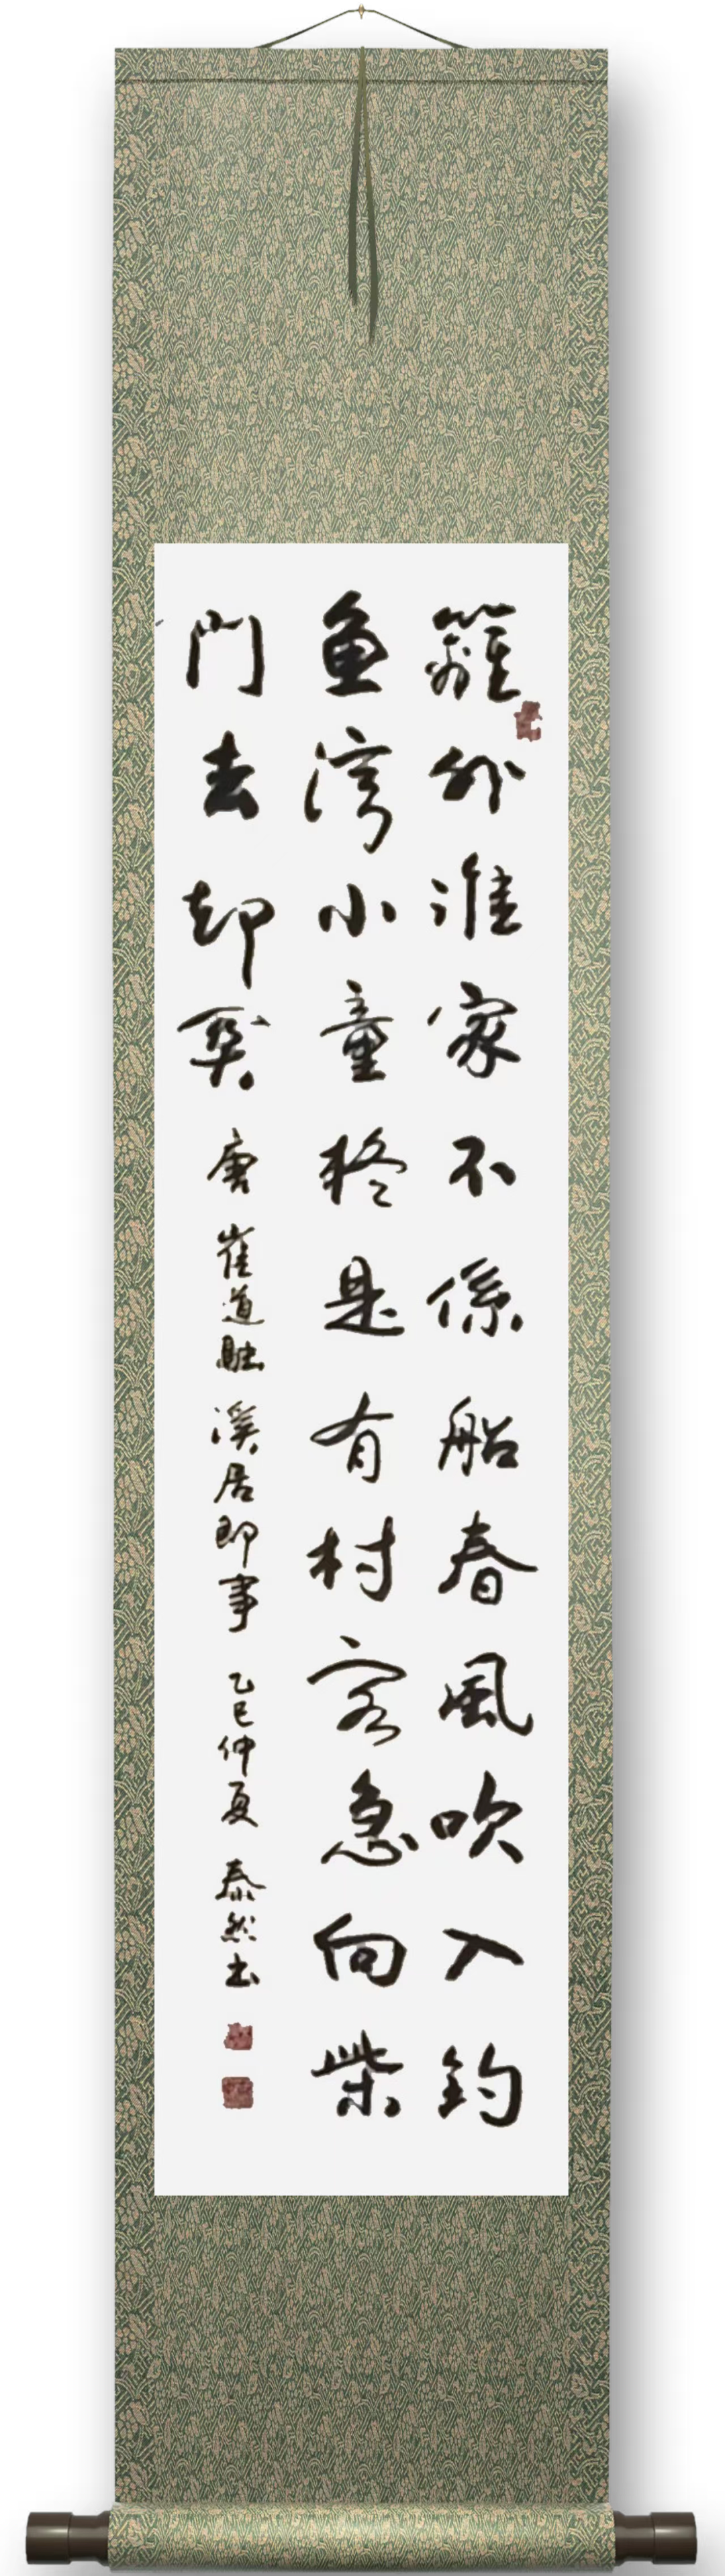 籬外誰家不係船春風吹入釣
鱼灣小童疑是有村客急向柴
門去却関 唐 崔道融 溪居即事 乙巳仲夏 泰然书